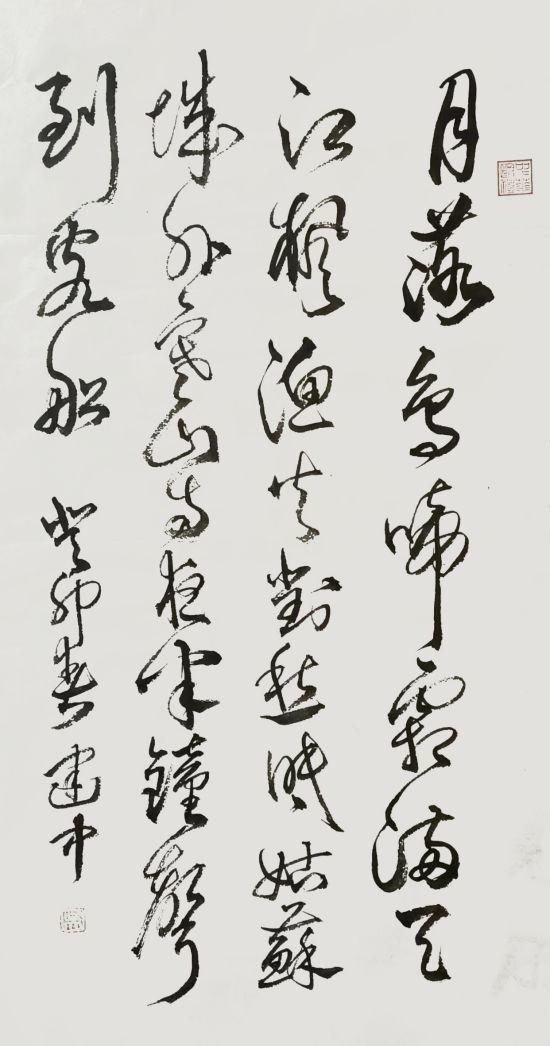 月落烏啼霜滿天
江楓漁火對愁眠姑蘇
城外寒山寺夜半鐘聲
到客船 癸卯春建中